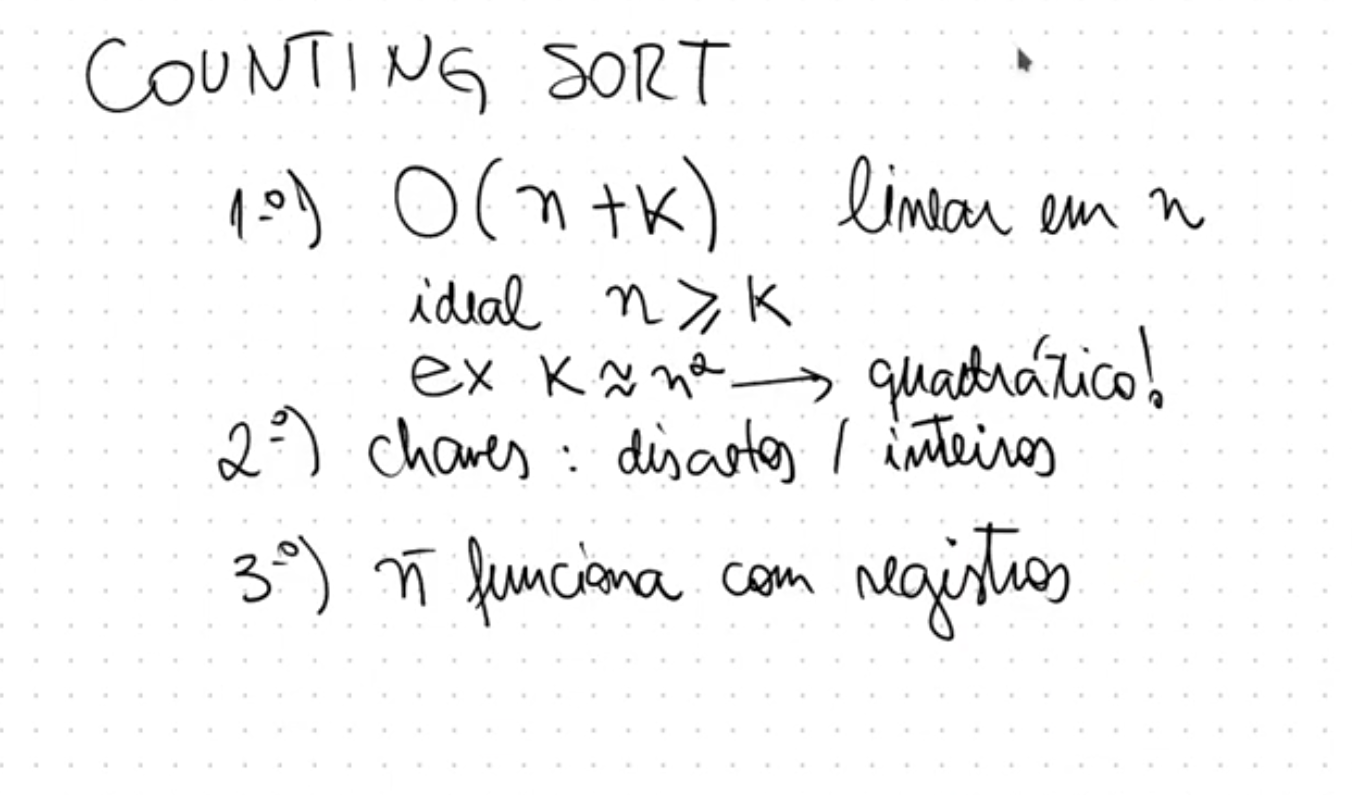 COUNTING SORT
1º) O(n+k) linear em n
ideal n ⩾ k
ex k ≈ n² → quadrático!
2º) chaves : discretos / inteiros
3º) ñ funciona com registros